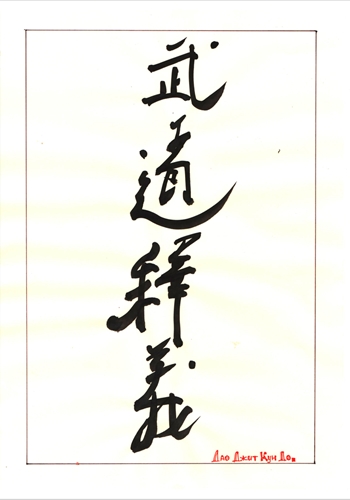 武道释義
Дао Джит Кун До.